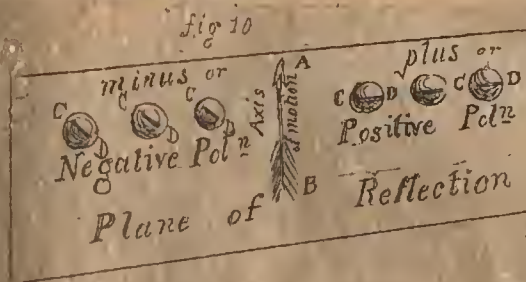 fig 10
minus or
C C C
D D D
Negative Pol<sup>n</sup>
A
Axis
of motion
B
plus or
C D C D
Positive Pol<sup>n</sup>
Plane of Reflection